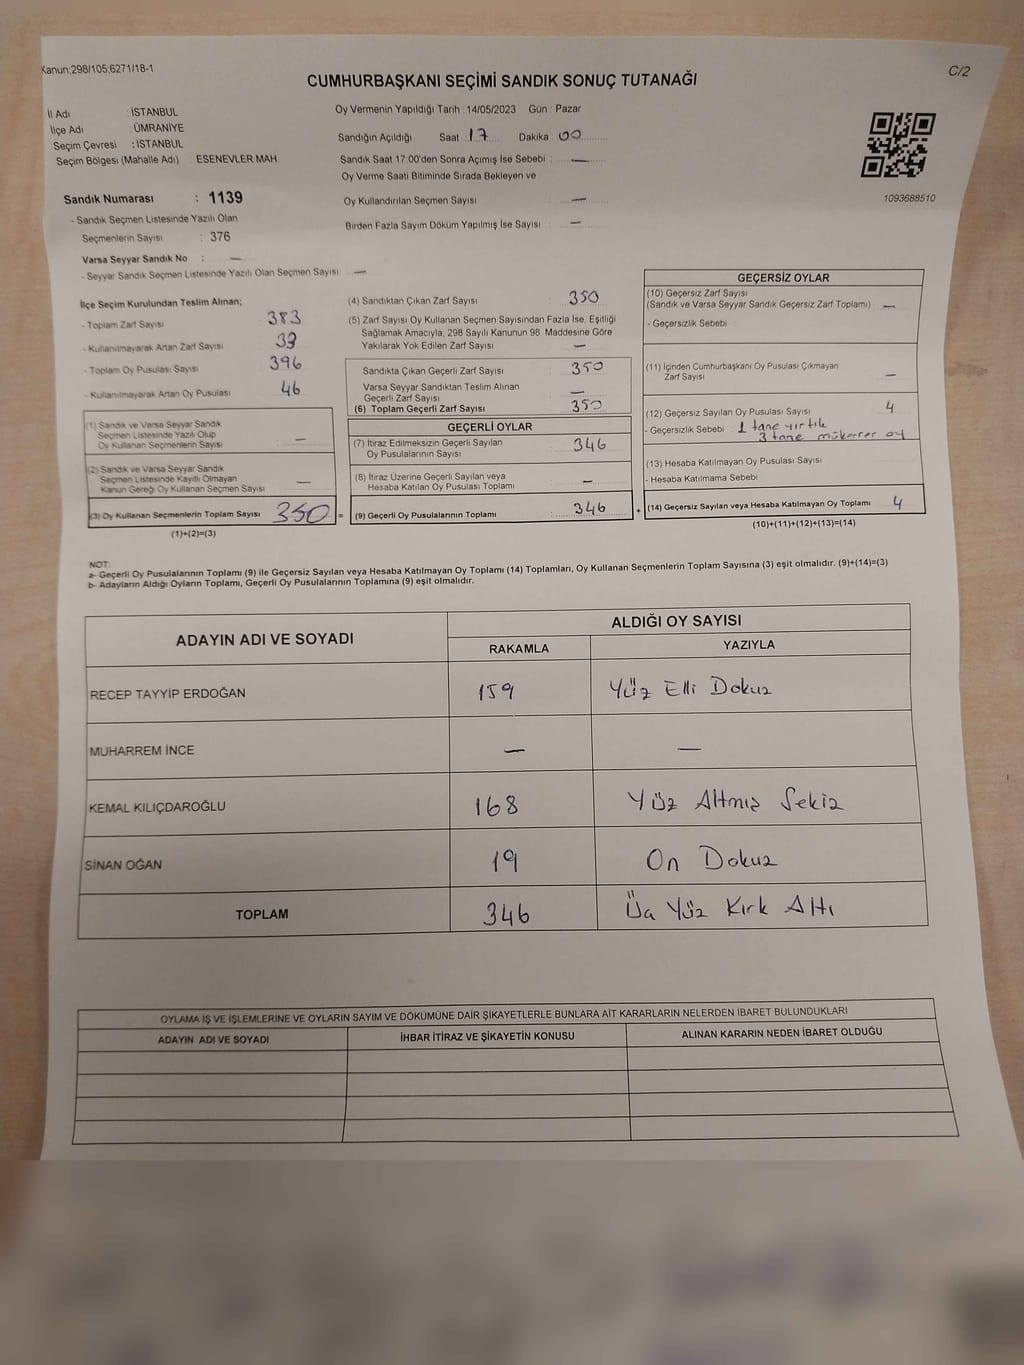 Kanun;298/105,6271/18-1
C/2
CUMHURBAŞKANI SEÇİMİ SANDIK SONUÇ TUTANAĞI
İl Adı : İSTANBUL
İlçe Adı ÜMRANİYE
Seçim Çevresi : İSTANBUL
Seçim Bölgesi (Mahalle Adı) ESENEVLER MAH.
Sandık Numarası : 1139
- Sandık Seçmen Listesinde Yazılı Olan
Seçmenlerin Sayısı : 376
Varsa Seyyar Sandık No : —
- Seyyar Sandık Seçmen Listesinde Yazılı Olan Seçmen Sayısı —
Oy Vermenin Yapıldığı Tarih : 14/05/2023 Gün : Pazar
Sandığın Açıldığı Saat : 17 Dakika : 00
Sandık Saat 17:00'den Sonra Açımış İse Sebebi : —
Oy Verme Saati Bitiminde Sırada Bekleyen ve
Oy Kullandırılan Seçmen Sayısı : —
Birden Fazla Sayım Döküm Yapılmış İse Sayısı : —
1093688510
İlçe Seçim Kurulundan Teslim Alınan;
- Toplam Zarf Sayısı 383
- Kullanılmayarak Artan Zarf Sayısı 33
- Toplam Oy Pusulası Sayısı 396
- Kullanılmayarak Artan Oy Pusulası 46
(1) Sandık ve Varsa Seyyar Sandık
Seçmen Listesinde Yazılı Olup
Oy Kullanan Seçmenlerin Sayısı —
(2) Sandık ve Varsa Seyyar Sandık
Seçmen Listesinde Kayıtlı Olmayan
Kanun Gereği Oy Kullanan Seçmen Sayısı —
(3) Oy Kullanan Seçmenlerin Toplam Sayısı 350 =
(1)+(2)=(3)
(4) Sandıktan Çıkan Zarf Sayısı 350
(5) Zarf Sayısı Oy Kullanan Seçmen Sayısından Fazla İse, Eşitliği
Sağlamak Amacıyla, 298 Sayılı Kanunun 98. Maddesine Göre
Yakılarak Yok Edilen Zarf Sayısı —
Sandıkta Çıkan Geçerli Zarf Sayısı 350
Varsa Seyyar Sandıktan Teslim Alınan
Geçerli Zarf Sayısı —
(6) Toplam Geçerli Zarf Sayısı 350
GEÇERLİ OYLAR
(7) İtiraz Edilmeksizin Geçerli Sayılan
Oy Pusulalarının Sayısı 346
(8) İtiraz Üzerine Geçerli Sayılan veya
Hesaba Katılan Oy Pusulası Toplamı —
(9) Geçerli Oy Pusulalarının Toplamı : 346 +
GEÇERSİZ OYLAR
(10) Geçersiz Zarf Sayısı
(Sandık ve Varsa Seyyar Sandık Geçersiz Zarf Toplamı) —
- Geçersizlik Sebebi :
(11) İçinden Cumhurbaşkanı Oy Pusulası Çıkmayan
Zarf Sayısı —
(12) Geçersiz Sayılan Oy Pusulası Sayısı 4
- Geçersizlik Sebebi : 1 tane yırtık
3 tane mükerrer oy
(13) Hesaba Katılmayan Oy Pusulası Sayısı
- Hesaba Katılmama Sebebi
(14) Geçersiz Sayılan veya Hesaba Katılmayan Oy Toplamı 4
(10)+(11)+(12)+(13)=(14)
NOT:
a- Geçerli Oy Pusulalarının Toplamı (9) ile Geçersiz Sayılan veya Hesaba Katılmayan Oy Toplamı (14) Toplamları, Oy Kullanan Seçmenlerin Toplam Sayısına (3) eşit olmalıdır. (9)+(14)=(3)
b- Adayların Aldığı Oyların Toplamı, Geçerli Oy Pusulalarının Toplamına (9) eşit olmalıdır.
ADAYIN ADI VE SOYADI ALDIĞI OY SAYISI
RAKAMLA YAZIYLA
RECEP TAYYİP ERDOĞAN 159 Yüz Elli Dokuz
MUHARREM İNCE — —
KEMAL KILIÇDAROĞLU 168 Yüz Altmış Sekiz
SİNAN OĞAN 19 On Dokuz
TOPLAM 346 Üç Yüz Kırk Altı
OYLAMA İŞ VE İŞLEMLERİNE VE OYLARIN SAYIM VE DÖKÜMÜNE DAİR ŞİKAYETLERLE BUNLARA AİT KARARLARIN NELERDEN İBARET BULUNDUKLARI
ADAYIN ADI VE SOYADI İHBAR İTİRAZ VE ŞİKAYETİN KONUSU ALINAN KARARIN NEDEN İBARET OLDUĞU